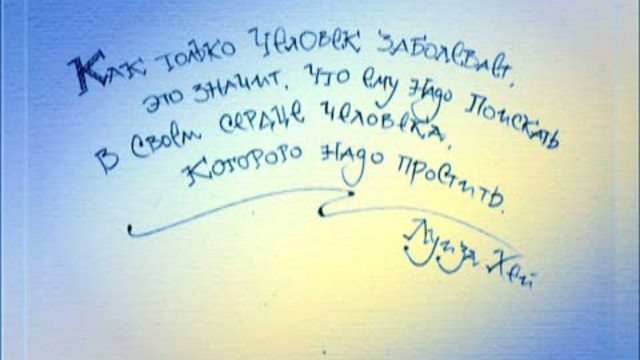 Как только человек заболевает,
это значит, что ему надо поискать
в своем сердце человека,
которого надо простить.
Луиза Хей